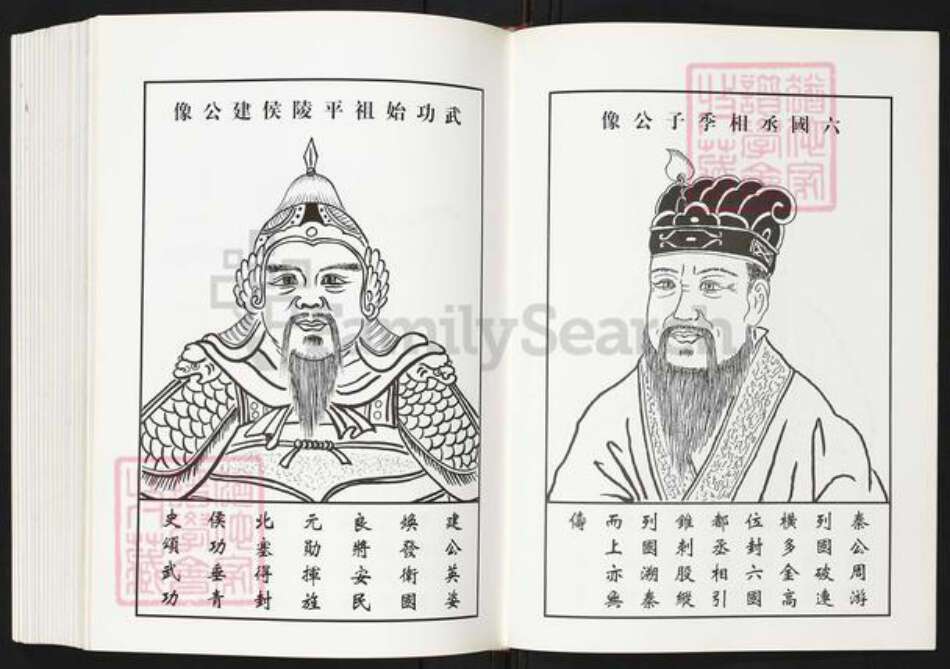 六國丞相季子公像
秦公周游
列國破連
橫多金高
位封六國
都丞相引
錐刺股縱
列國溯秦
而上亦無
儔
武功始祖平陵侯建公像
建公英姿
煥發衛國
良將安民
元勛揮旌
北塞得封
侯功垂青
史頌武功
FamilySearch